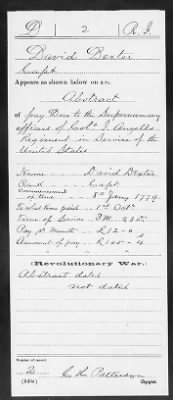 D | 2 | R.I.
David Dexter
Capt
Appears as shown below on an
Abstract
of pay Due to the Supernumerary
officers of Col. I. Angells
Regiment in Service of the
United States
Name David Dexter
Rank Capt.
Commencement of time 8th Jany 1779
To what time paid 1st Octr
Time of Service 8 M. 23 D.
Pay pr Month £12-0
Amount of pay £105-4
(Revolutionary War.)
Abstract dated
not dated
Number of record:
2
(545c) Copyist.